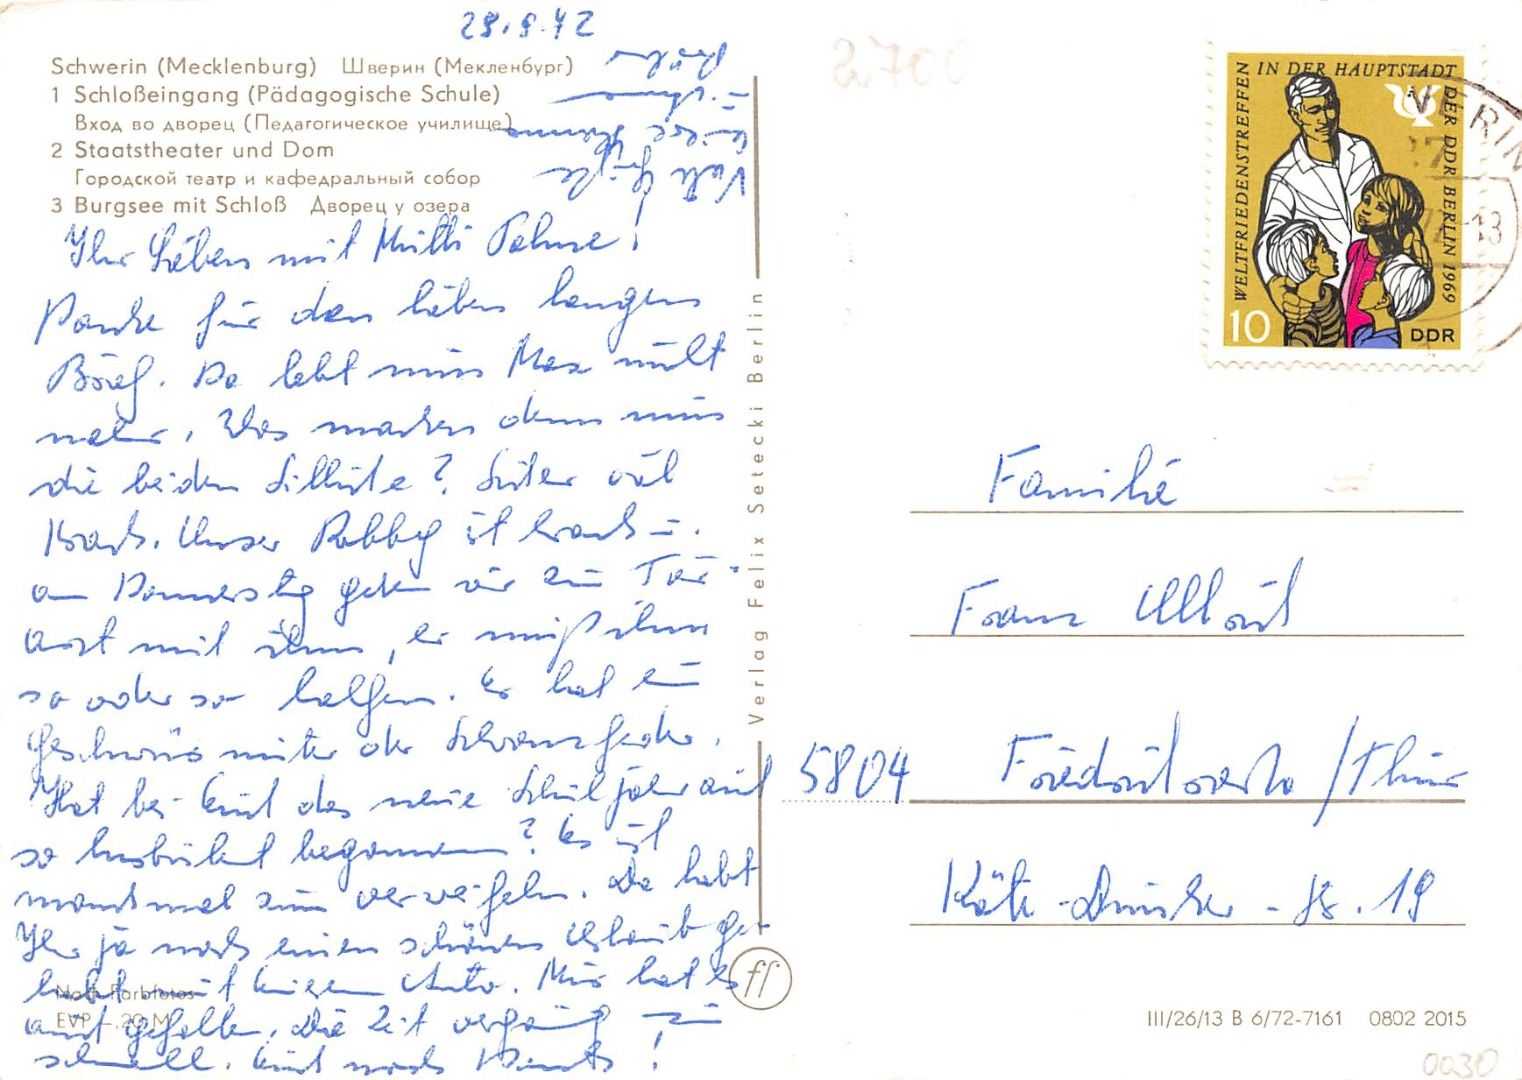 29.9.72
Schwerin (Mecklenburg) Шверин (Мекленбург)
1 Schloßeingang (Pädagogische Schule)
Вход во дворец (Педагогическое училище)
2 Staatstheater und Dom
Городской театр и кафедральный собор
3 Burgsee mit Schloß Дворец у озера
Ihr Lieben mit Mutti
Danke für den lieben langen
Brief. Da lebt nun Max nicht
mehr. Was machen denn nun
die beiden
Unser Robby ist krank u.
am Donnerstag gehen wir zum Tier-
arzt mit ihm, er muß ihm
so oder so helfen. Er hat ein
Geschwür unter der Schwanzfeder.
Hat bei Euch das neue Schuljahr auch
so begonnen? Es ist
manchmal zum verzweifeln. Da habt
Ihr ja noch einen schönen Urlaub ge-
habt mit Eurem Auto. Mir hat es
auch gefallen, die Zeit verging zu
schnell. Euch noch
Viele Grüße
Eure
u.
Verlag Felix Setecki Berlin
Nach Farbfotos
EVP -.20 M
ff
WELTFRIEDENSTREFFEN IN DER HAUPTSTADT DER DDR BERLIN 1969
10 DDR
VERIN
-13
2700
Familie
Franz
5804 Friedrichroda/Thür
Käte-Duncker-Str. 19
III/26/13 B 6/72-7161 0802 2015
0030